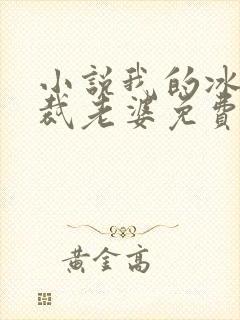 小説我的冰
裁老婆免費
黄金高